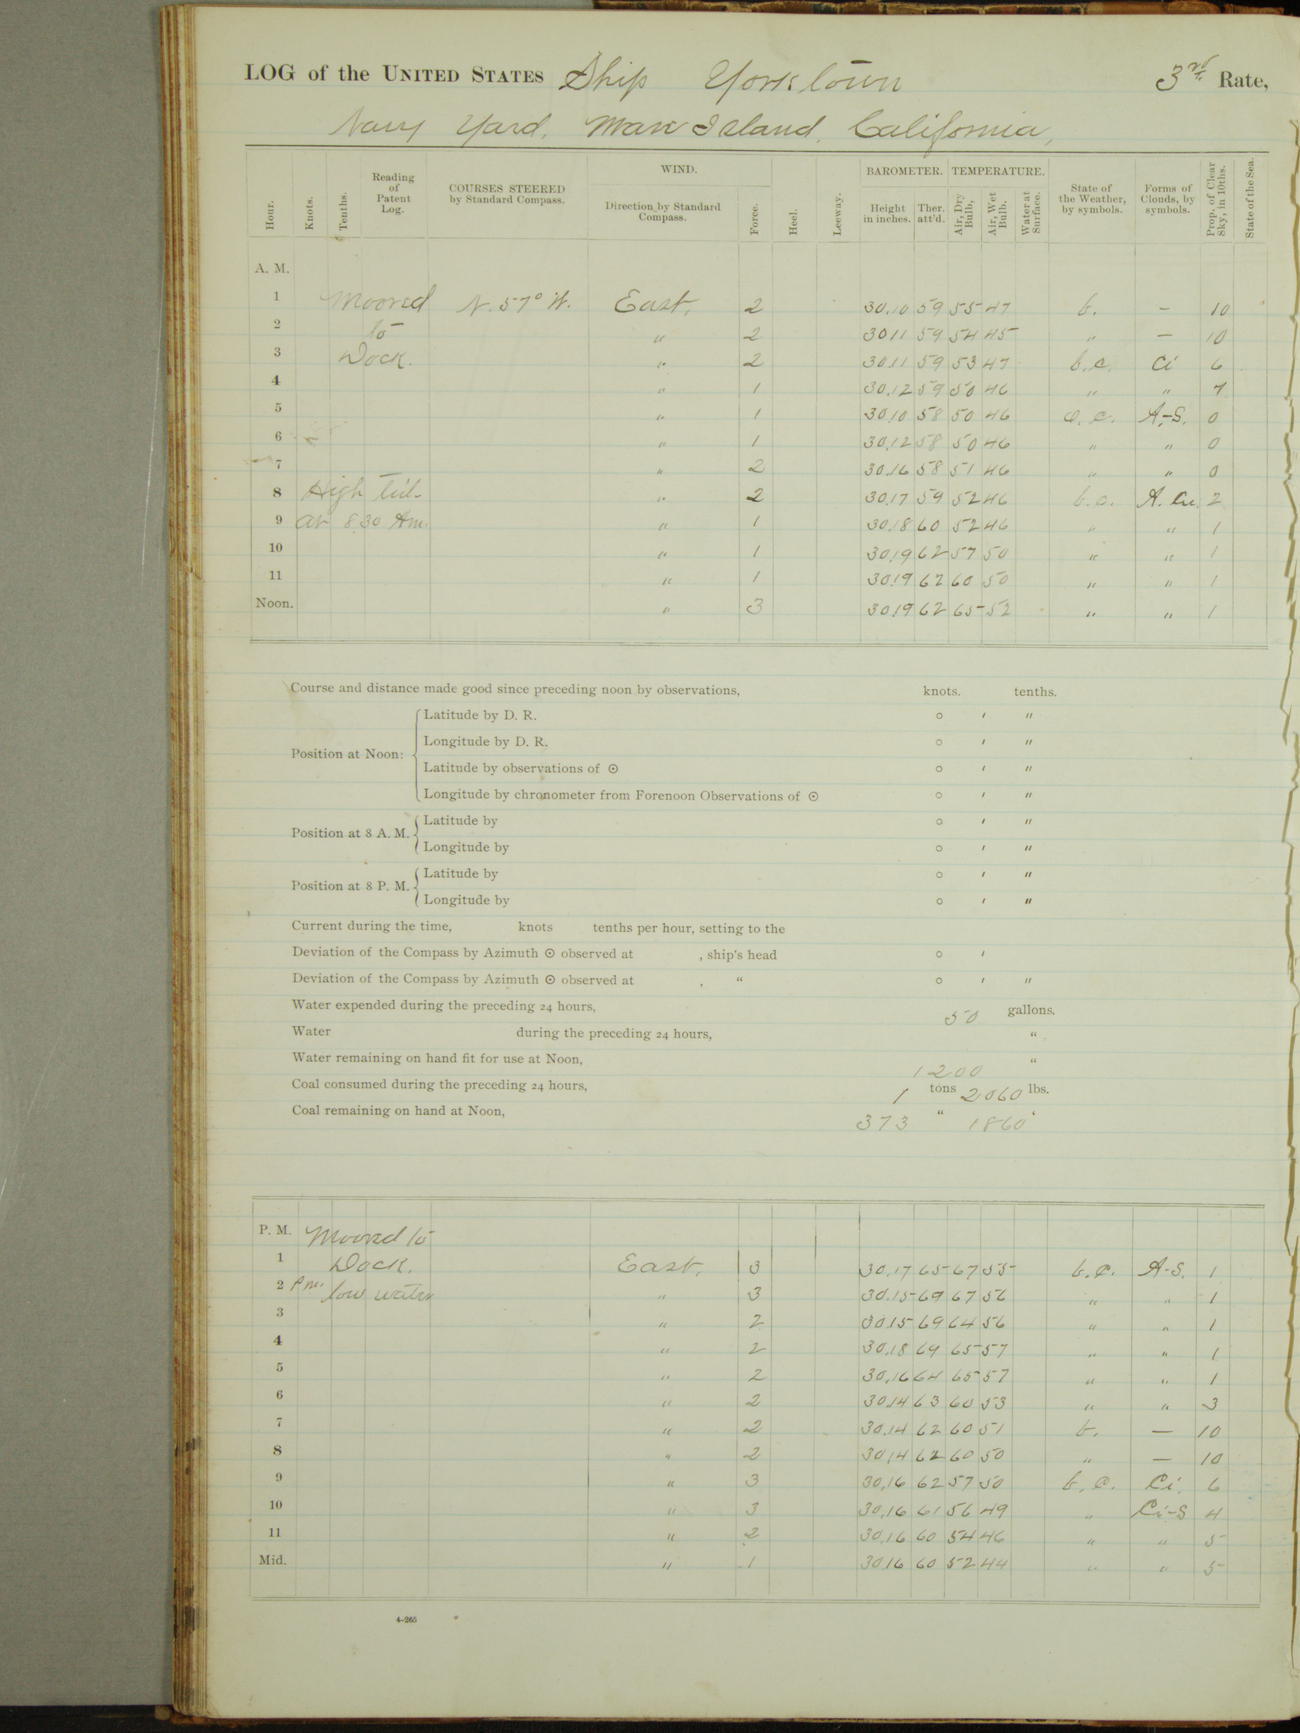 LOG of the UNITED STATES Ship Yorktown 3rd Rate,
Navy Yard, Mare Island, California,
Hour. Knots. Tenths. Reading of Patent Log. COURSES STEERED by Standard Compass. WIND. Direction by Standard Compass. Force. Heel. Leeway. BAROMETER. Height in inches. Ther. att'd. TEMPERATURE. Air, Dry Bulb, Air, Wet Bulb. Water at Surface. State of the Weather, by symbols. Forms of Clouds, by symbols. Prop. of Clear Sky, in 10ths. State of the Sea.
A. M.
1 Moored N. 57° W. East. 2 30.10 59 55 47 b. — 10
2 to " 2 30 11 59 54 45 " — 10
3 Dock. " 2 30.11 59 53 47 b.c. Ci 6
4 " 1 30.12 59 50 46 " " 7
5 " 1 30.10 58 50 46 o. c. A.-S. 0
6 " 1 30.12 58 50 46 " " 0
7 " 2 30.16 58 51 46 " " 0
8 High tide " 2 30.17 59 52 46 b.c. A. Cu. 2
9 at 8.30 Am. " 1 30.18 60 52 46 " " 1
10 " 1 30.19 62 57 50 " " 1
11 " 1 30.19 62 60 50 " " 1
Noon. " 3 30.19 62 65 52 " " 1
Course and distance made good since preceding noon by observations, knots. tenths.
Position at Noon: Latitude by D. R. ° ′ ″
Longitude by D. R. ° ′ ″
Latitude by observations of ☉ ° ′ ″
Longitude by chronometer from Forenoon Observations of ☉ ° ′ ″
Position at 8 A. M. Latitude by ° ′ ″
Longitude by ° ′ ″
Position at 8 P. M. Latitude by ° ′ ″
Longitude by ° ′ ″
Current during the time, knots tenths per hour, setting to the
Deviation of the Compass by Azimuth ☉ observed at , ship's head ° ′
Deviation of the Compass by Azimuth ☉ observed at , " ° ′ ″
Water expended during the preceding 24 hours, 50 gallons.
Water during the preceding 24 hours, "
Water remaining on hand fit for use at Noon, 1200 "
Coal consumed during the preceding 24 hours, 1 tons 2060 lbs.
Coal remaining on hand at Noon, 373 " 1860 "
P. M. Moored to
1 Dock. East. 3 30.17 65 67 55 b.c. A-S. 1
2 Pm. low water " 3 30.15 69 67 56 " " 1
3 " 2 30.15 69 64 56 " " 1
4 " 2 30.18 69 65 57 " " 1
5 " 2 30.16 64 65 57 " " 1
6 " 2 30.14 63 60 53 " " 3
7 " 2 30.14 62 60 51 b. — 10
8 " 2 30.14 62 60 50 " — 10
9 " 3 30.16 62 57 50 b. c. Ci. 6
10 " 3 30.16 61 56 49 " Ci-S 4
11 " 2 30.16 60 54 46 " " 5
Mid. " 1 30.16 60 52 44 " " 5
4-265